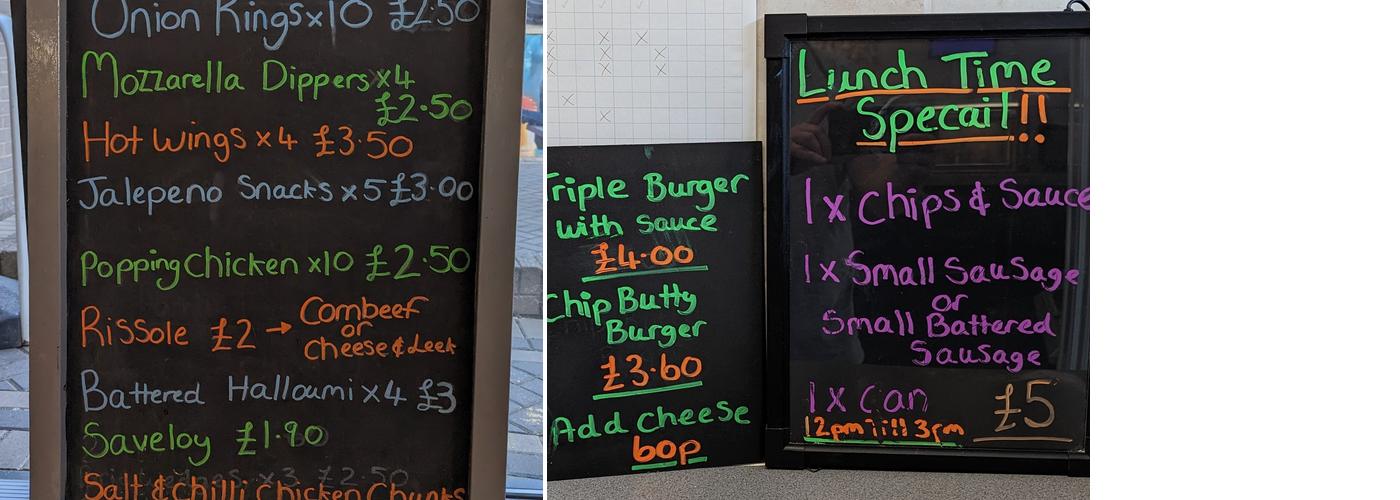 Onion Rings x10 £2.50
Mozzarella Dippers x4
£2.50
Hot wings x4 £3.50
Jalepeno Snacks x5 £3.00
Popping Chicken x10 £2.50
Rissole £2 → Cornbeef
or
Cheese & Leek
Battered Halloumi x4 £3
Saveloy £1.90
x3 £2.50
Salt & chilli Chicken Chunks
Triple Burger
with Sauce
£4.00
Chip Butty
Burger
£3.60
Add cheese
60p
Lunch Time
Specail!!
1x Chips & Sauce
1x Small Sausage
or
Small Battered
Sausage
1x Can £5
12pm till 3pm